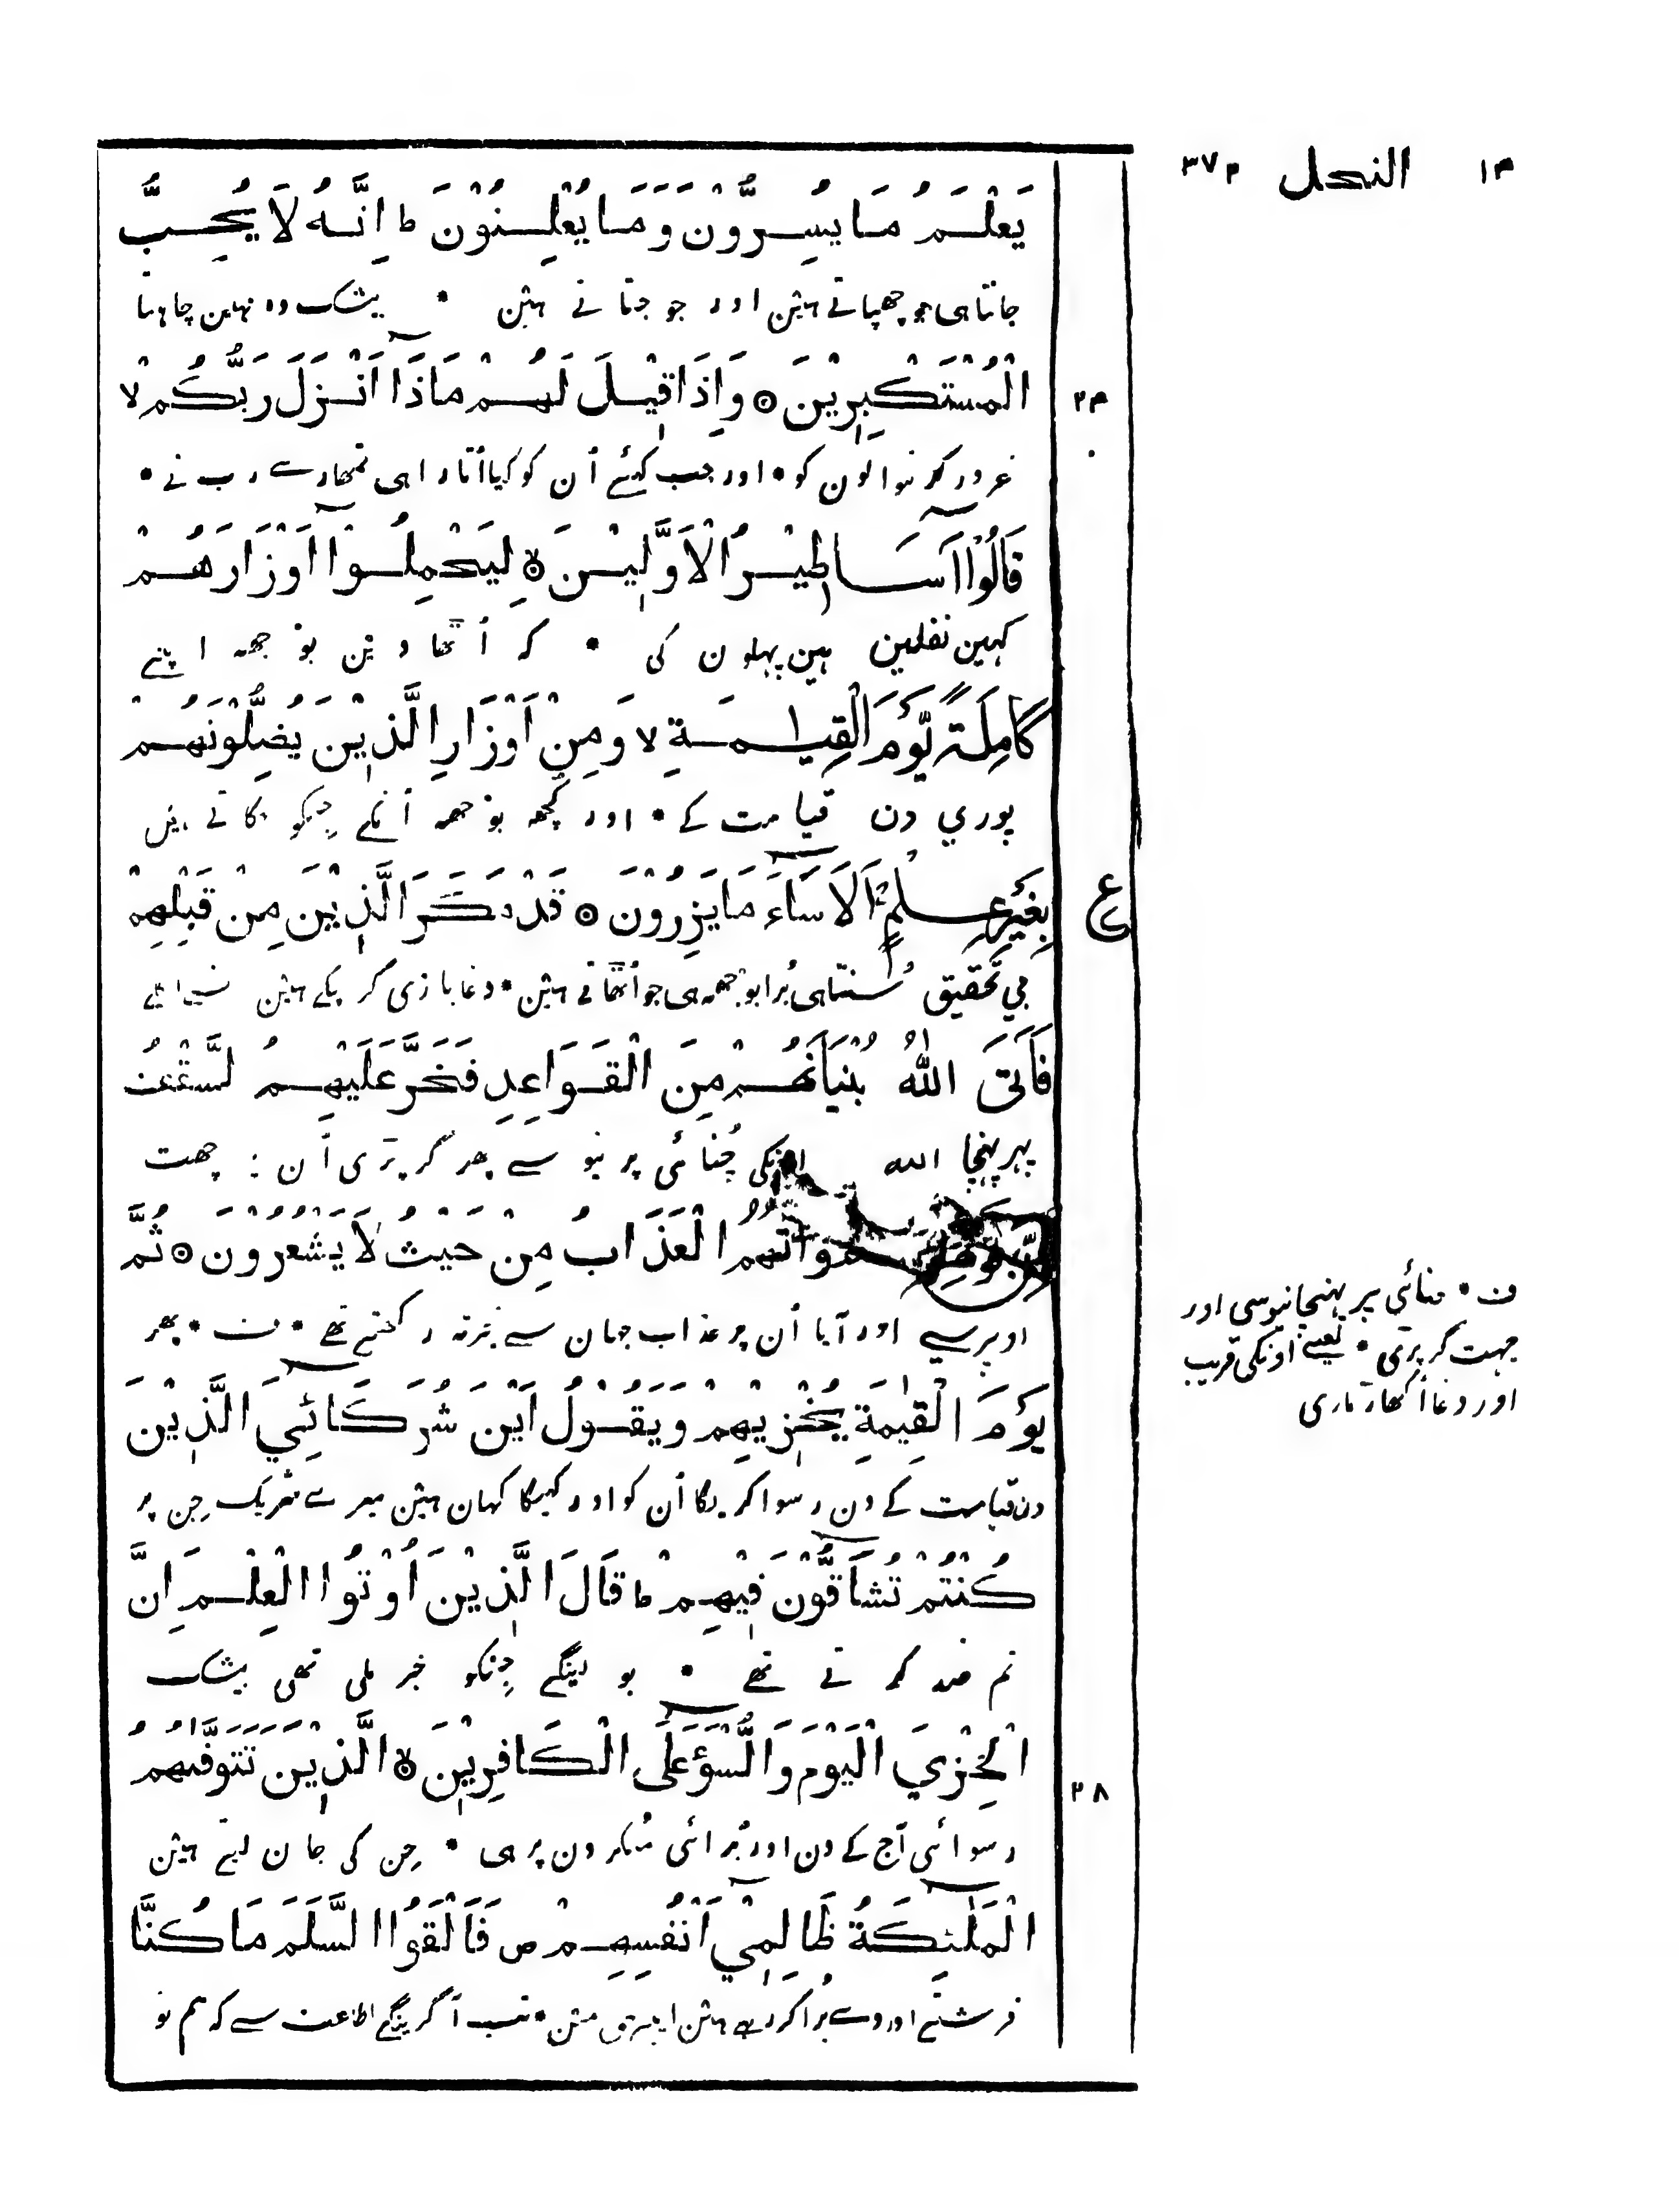 ١٣ النحل ٣٧٣
يَعْلَمُ مَا يُسِرُّوْنَ وَمَا يُعْلِنُوْنَ ط اِنَّهُ لَا يُحِبُّ
جانتا هی جو چھپاتے هیْن اور جو جتا تے هیْن * بیشک وہ نہین چاہتا
الْمُسْتَكْبِرِيْنَ ۞ وَاِذَا قِيْلَ لَهُمْ مَاذَا اَنْزَلَ رَبُّكُمْ لا
٢٣
غرور کرنیوالون کو * اور جب کہئے اُن کو کیا اُتارا هی تمھارے رب نے *
قَالُوْا اَسَاطِيْرُ الْاَوَّلِيْنَ ۞ لِيَحْمِلُوْا اَوْزَارَهُمْ
کہین نقلین هین پہلون کی * کہ اُتھاویْن بوْجھہ اپنے
كَامِلَةً يَّوْمَ الْقِيٰمَةِ لا وَمِنْ اَوْزَارِ الَّذِيْنَ يُضِلُّوْنَهُمْ
پوري دن قیامت کے * اور کُچھہ بوْجھہ اُنکے جِنکو بہکاتے هیْں
بِغَيْرِ عِلْمٍ اَلَا سَاءَ مَا يَزِرُوْنَ ۞ قَدْ مَكَرَ الَّذِيْنَ مِنْ قَبْلِهِمْ
ع
بے تحقیق سُنتا هی بُرا بوجھہ هی جو اُتھاتے هیْن * دغابازی کر چکے هیْن
فَاَتَى اللهُ بُنْيَانَهُمْ مِنَ الْقَوَاعِدِ فَخَرَّ عَلَيْهِمُ السَّقْفُ
پہر پہنچا الله اونکی چُنائی پر نیو سے پھر گر پڑی اُن پر چھت
وَاَتٰهُمُ الْعَذَابُ مِنْ حَيْثُ لَا يَشْعُرُوْنَ ۞ ثُمَّ
اوپر سے اور آیا اُن پر عذاب جہان سے خبر نہ رکھتے تھے * ف * پھر
يَوْمَ الْقِيٰمَةِ يُخْزِيْهِمْ وَيَقُوْلُ اَيْنَ شُرَكَائِيَ الَّذِيْنَ
دن قیامت کے دن رسوا کریگا اُن کو اور کہیگا کہان هیْن میرے شریک جِن پر
كُنْتُمْ تُشَاقُّوْنَ فِيْهِمْ ط قَالَ الَّذِيْنَ اُوْتُوا الْعِلْمَ اِنَّ
تم ضد کرتے تھے * بولینگے جِنکو خبر ملی تھی بیشک
الْخِزْيَ الْيَوْمَ وَالسُّوْءَ عَلَى الْكَافِرِيْنَ ۞ الَّذِيْنَ تَتَوَفّٰىهُمُ
٢٨
رسوائی آج کے دن اور بُرائی مُنکرون پر هی * جِن کی جان لیتے هیْن
الْمَلٰئِكَةُ ظَالِمِيْ اَنْفُسِهِمْ ص فَاَلْقَوُا السَّلَمَ مَا كُنَّا
فرشتے اور وے بُرا کر رهے هیْن اپنے حق میْن * تب آ کرینگے اطاعت سے کہ هم تو
ف * چنائي پر پہنچا نیو سی اور
چہت گر پڑی * یعنے اونکی فریب
اور دغا اُکھاڑ ماری